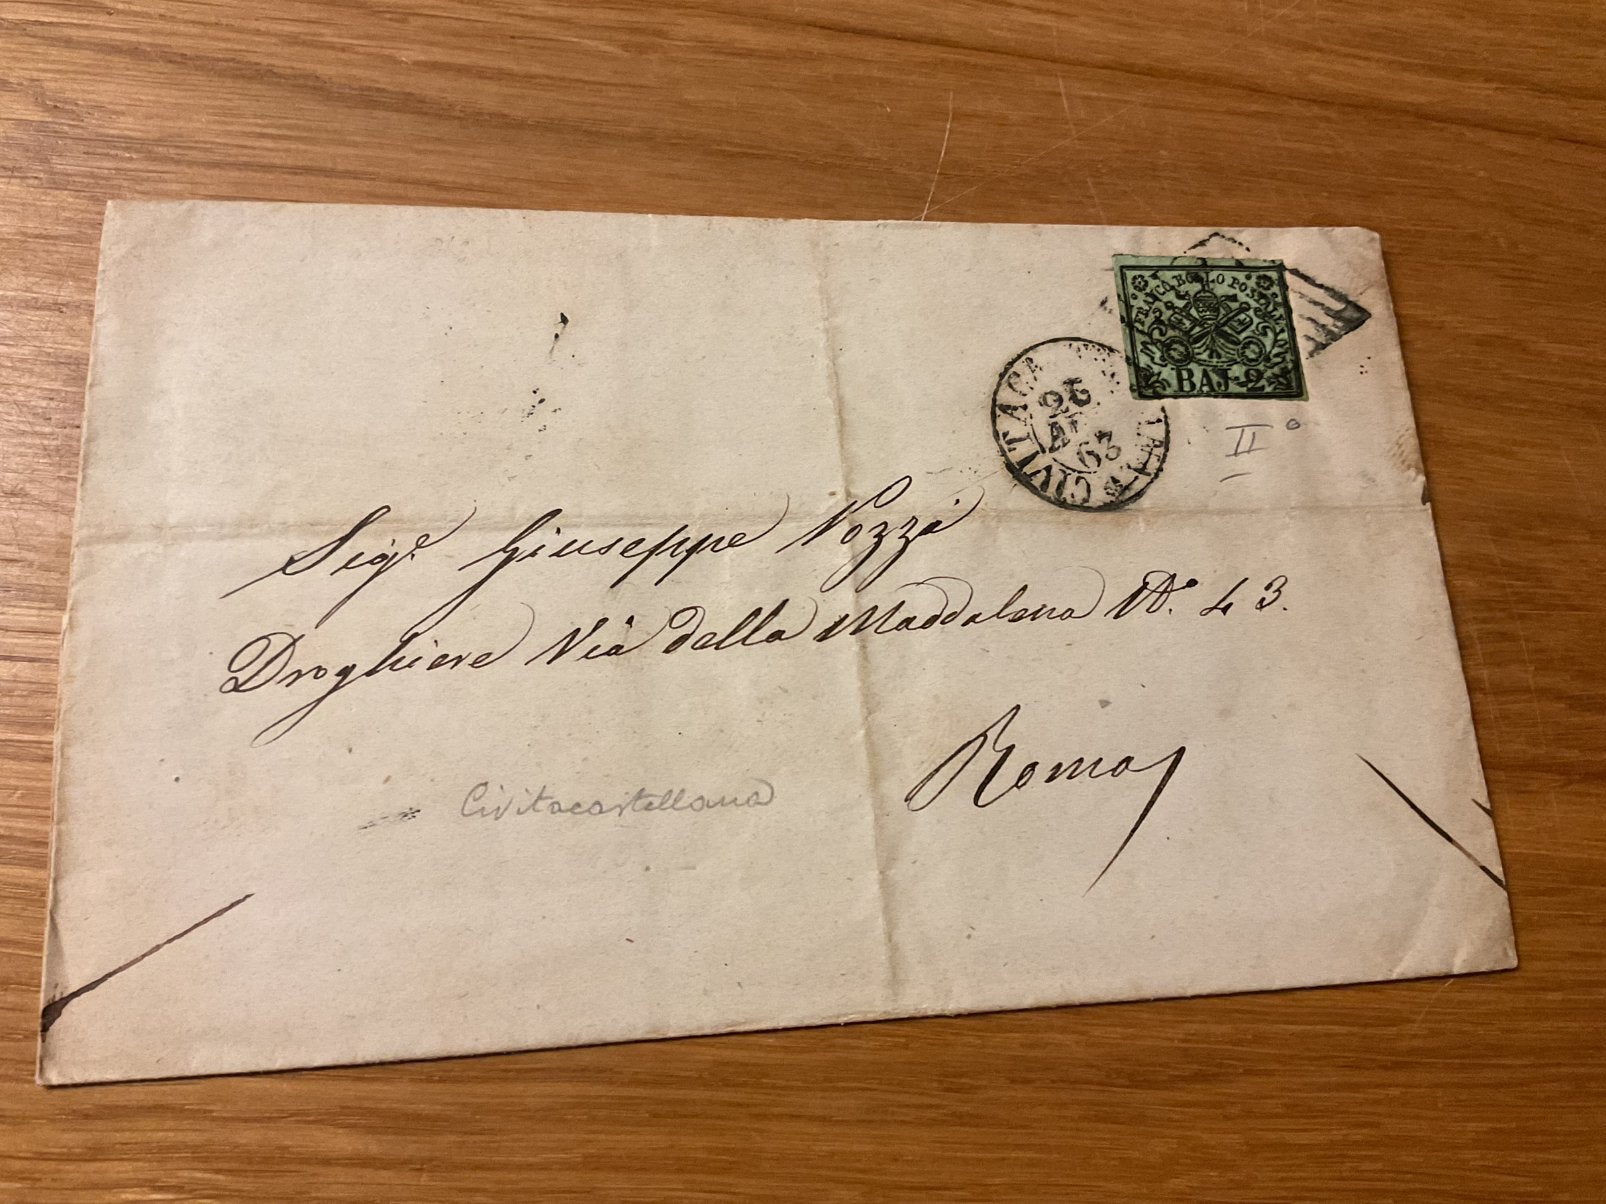 FRANCO BOLLO POSTALE
BAJ 2
CIVITACA
25
63
II°
Sigr. Giuseppe Pozzi
Droghiere Via della Maddalena No. 43.
Roma
Civitacastellana